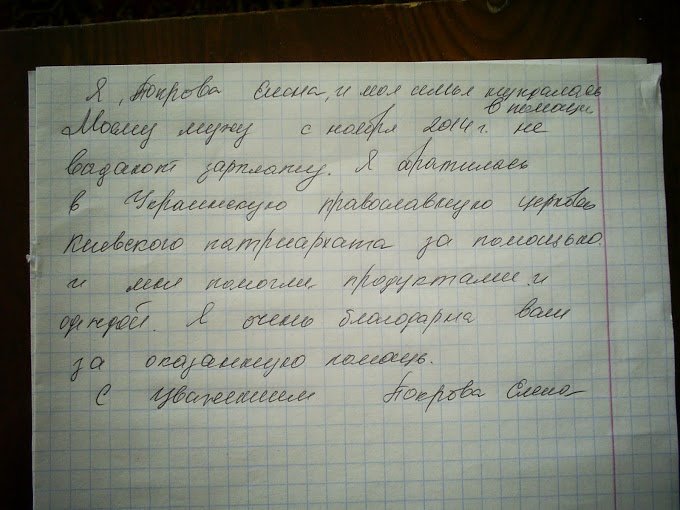 Я, Покрова Елена, и моя семья нуждалась
в помощи
Моему мужу с ноября 2014 г. не
выдают зарплату. Я обратилась
в Украинскую православную церковь
Киевского патриархата за помощью.
и мне помогли, продуктами и
одеждой. Я очень благодарна вам
за оказанную помощь.
С уважением Покрова Елена